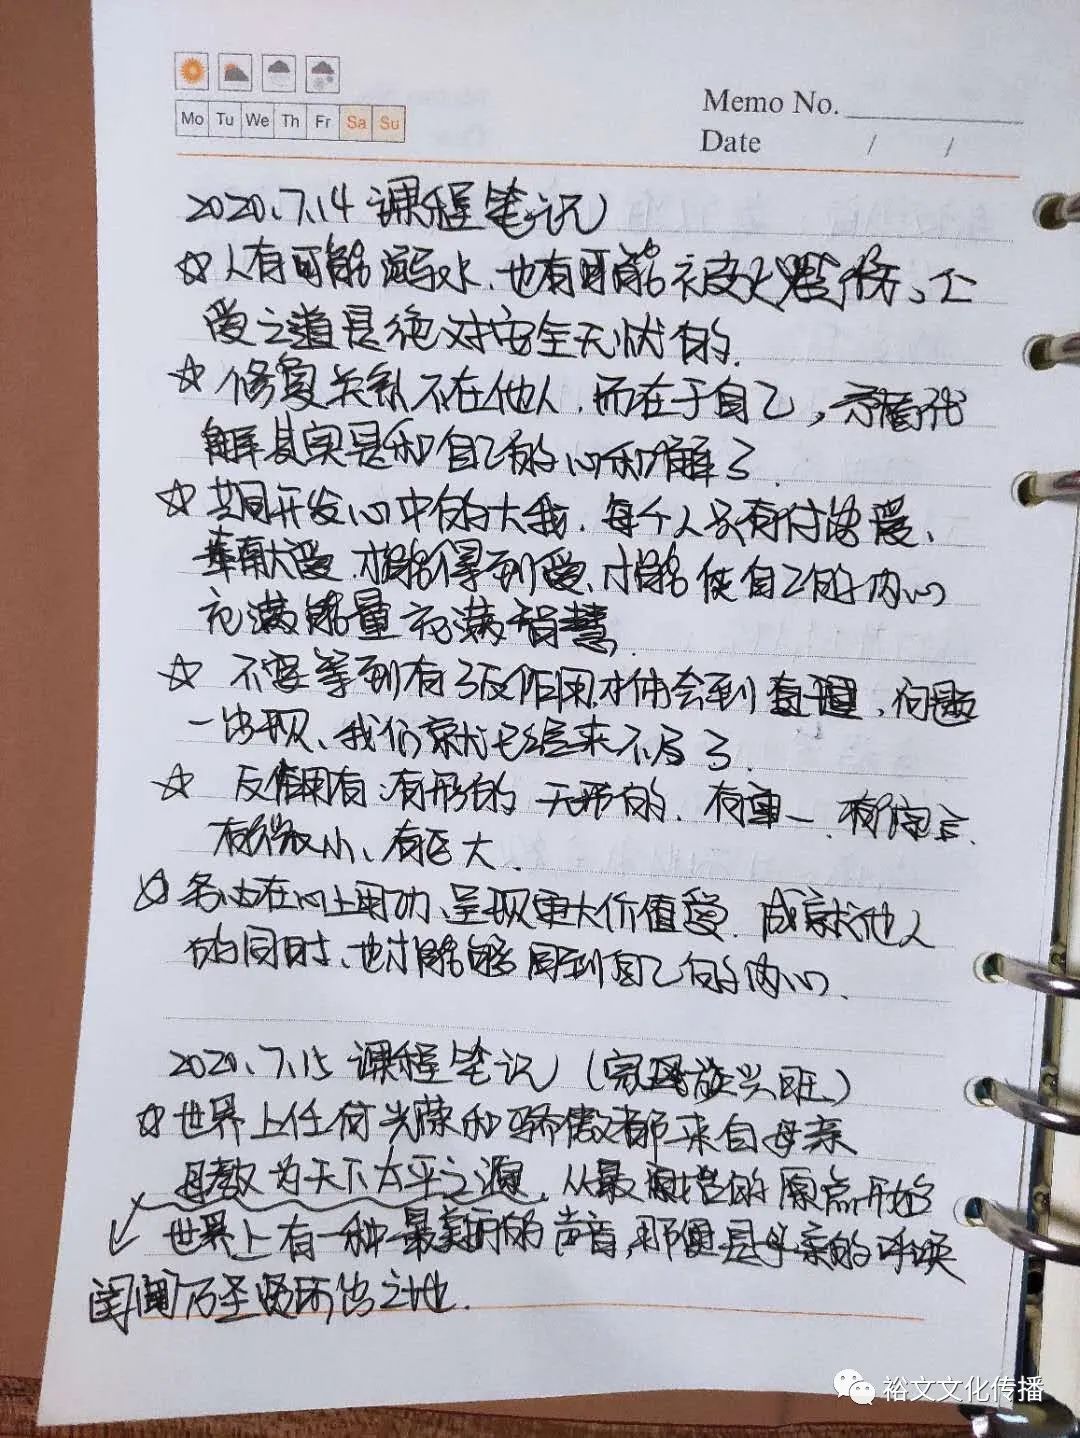 Mo Tu We Th Fr Sa Su
Memo No.
Date / /
2020.7.14 课程笔记
☆人有可能溺水、也有可能被火烧伤、
爱之道是绝对安全无忧的.
☆修复关系不在他人,而在于自己,
解其实是和自己的心和解了.
☆共同开发心中的大我.每个人只有付出爱、
奉献大爱.才能得到爱、才能使自己的内心
充满能量充满智慧.
☆不要等到有了反作用才体会到 问题
一出现、我们就已经来不及了.
☆反作用有:有形的 无形的.有单一.有综合.
有微小、有巨大.
☆务必在心上用功、呈现更大价值爱.成就他人
的同时、也才能够回到自己的内心.
2020.7.15 课程笔记(家族兴班)
☆世界上任何光荣和骄傲都来自母亲
母教为天下太平之源,从最 的原点开始
世界上有一种最美丽的声音,那便是母亲的呼唤
闺阃乃圣贤所出之地.
裕文文化传播